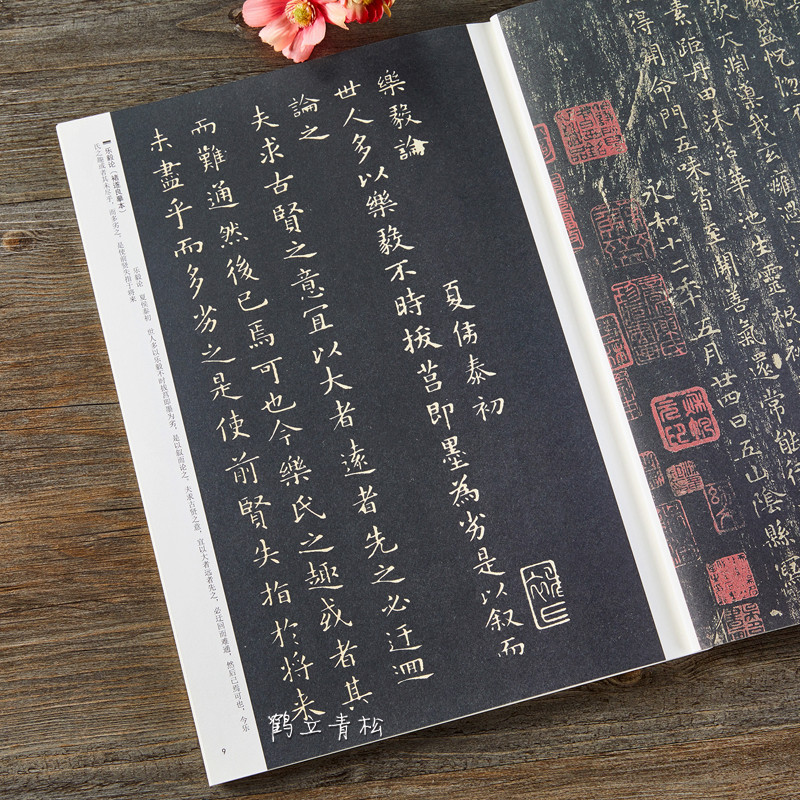 樂毅論
夏侯泰初
世人多以樂毅不時拔莒即墨為劣是以叙而
論之
夫求古賢之意宜以大者遠者先之必迂迴
而難通然後已焉可也今樂氏之趣或者其
未盡乎而多劣之是使前賢失指於將来
乐毅论（褚遂良摹本）
乐毅论 夏侯泰初 世人多以乐毅不时拔莒即墨为劣，是以叙而论之。夫求古贤之意，宜以大者远者先之，必迂回而难通，然后已焉可也。今乐
氏之趣或者其未尽乎，而多劣之。是使前贤失指于将来
9
素 距丹田沐浴華池生靈根
得開命門五味皆至開善氣還常能行
永和十二年五月廿四日五山陰縣寫
鹤立青松